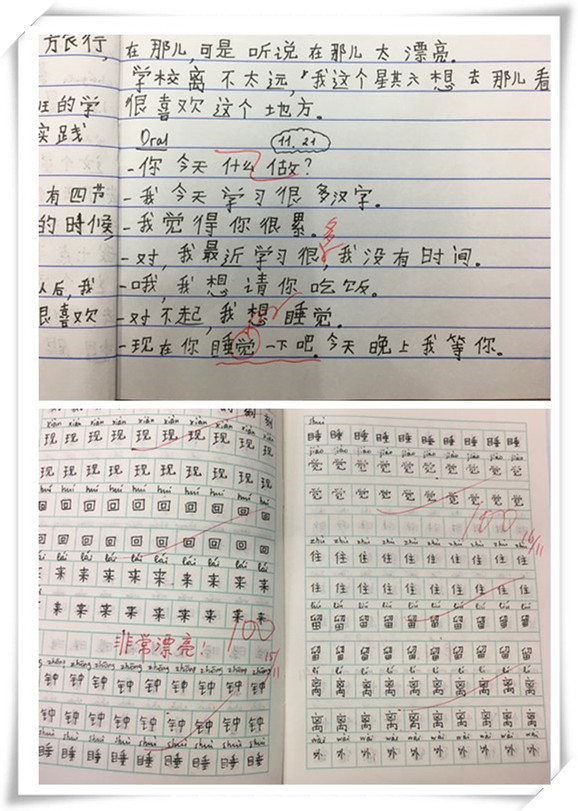 旅行,
班的学
实践
有四节
的时候,
以后,我
很喜欢
在那儿,可是听说在那儿太漂亮。
学校离不太远,我这个星其六想去那儿看
很喜欢这个地方。
Oral
11.21
-你今天什么做?
-我今天学习很多汉字。
-我觉得你很累。
多
-对,我最近学习很,我没有时间。
-哦,我想请你吃饭。
-对不起,我想睡觉。
-现在你睡觉一下吧。今天晚上我等你。
xiàn xiàn xiàn xiàn xiàn xiàn xiàn xiàn
现 现 现 现 现 现 现 现 现
现 现 现 现 现 现 现 现 现
huí huí huí huí huí huí huí huí huí
回 回 回 回 回 回 回 回 回
回 回 回 回 回 回 回 回 回
lái lái lái lái lái lái lái lái lái
来 来 来 来 来 来 来 来 来
来 来 来 来 来 来 来 来 来
100
15/11
非常漂亮!
zhōng zhōng zhōng zhōng zhōng zhōng zhōng zhōng
钟 钟 钟 钟 钟 钟 钟 钟 钟
钟 钟 钟 钟 钟 钟 钟 钟 钟
shuì shuì shuì shuì shuì shuì shuì shuì shuì
睡 睡 睡 睡 睡 睡 睡 睡 睡
shuì
睡 睡 睡 睡 睡 睡 睡 睡 睡
jiào jiào jiào jiào jiào jiào jiào jiào jiào
觉 觉 觉 觉 觉 觉 觉 觉 觉
觉 觉 觉 觉 觉 觉 觉 觉 觉
100
16/11
zhù zhù zhù zhù zhù zhù zhù zhù zhù
住 住 住 住 住 住 住 住 住
住 住 住 住 住 住 住 住 住
liú liú liú liú liú liú liú liú liú
留 留 留 留 留 留 留 留 留
留 留 留 留 留 留 留 留 留
lí lí lí lí lí lí lí lí lí
离 离 离 离 离 离 离 离 离
离 离 离 离 离 离 离 离 离
wài wài wài wài wài wài wài wài wài
外 外 外 外 外 外 外 外 外